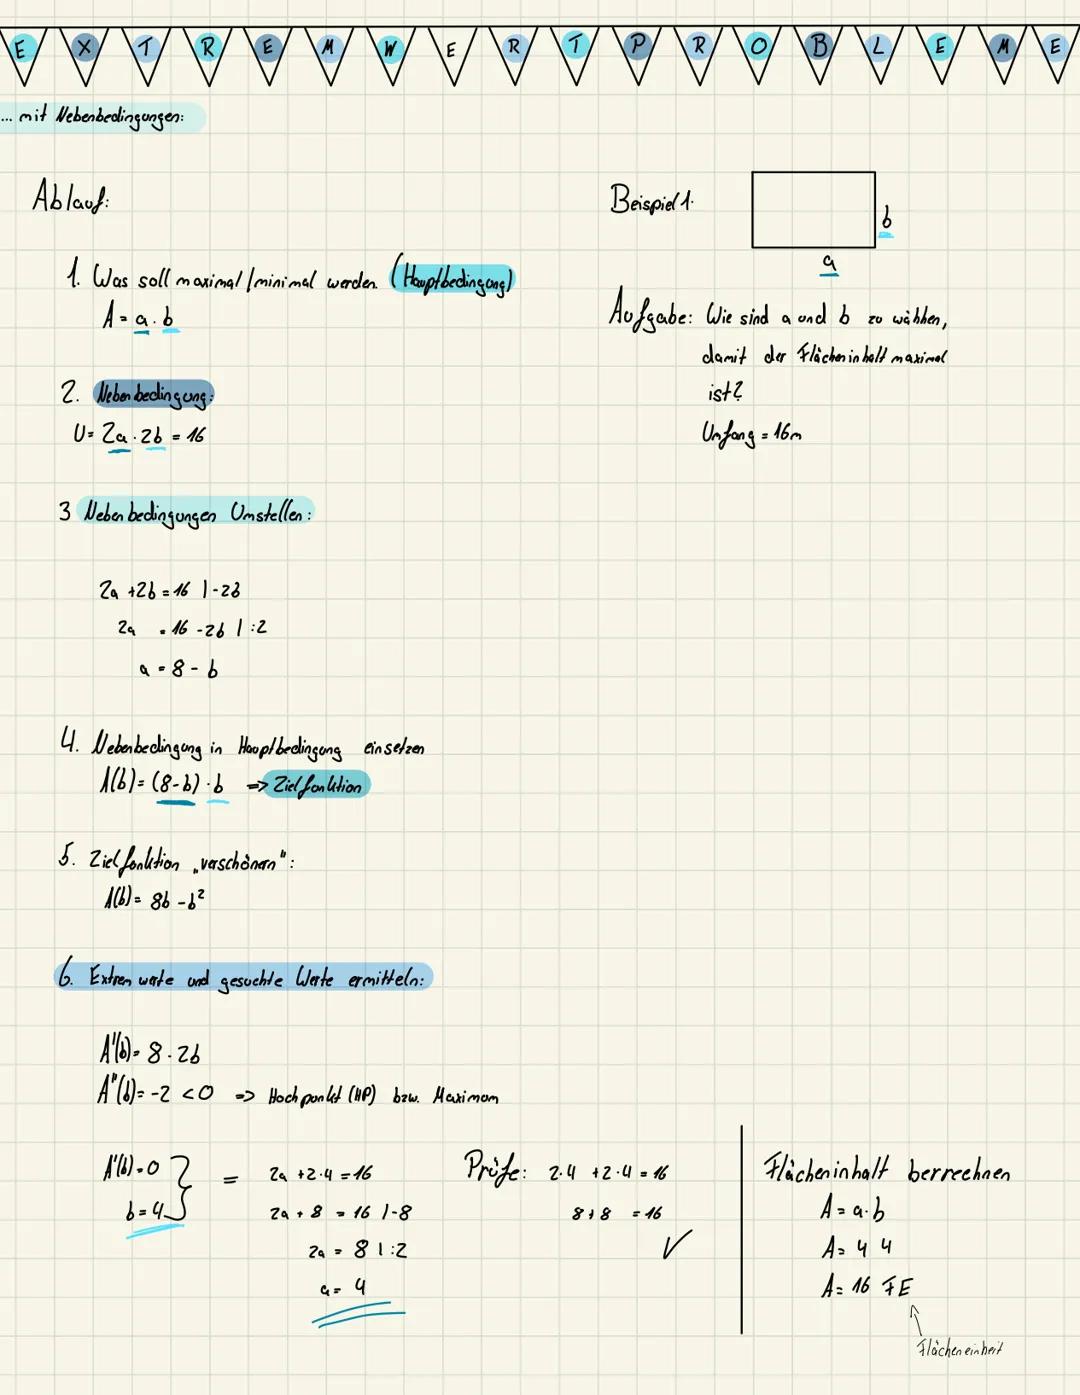 EXTREMWERTPROBLEME
... mit Nebenbedingungen:
Ablauf:
1. Was soll maximal/minimal werden. (Hauptbedingung)
A = a · b
2. Nebenbedingung:
U = 2a · 2b = 16
3 Nebenbedingungen Umstellen:
2a + 2b = 16 | - 2b
2a = 16 - 2b | : 2
a = 8 - b
4. Nebenbedingung in Hauptbedingung einsetzen
A(b) = (8-b) · b => Zielfunktion
5. Zielfunktion „verschönern":
A(b) = 8b - b²
6. Extremwerte und gesuchte Werte ermitteln:
A'(b) = 8 - 2b
A"(b) = -2 < 0 => Hochpunkt (HP) bzw. Maximum
A'(b) = 0
b = 4
=
2a + 2·4 = 16
2a + 8 = 16 | -8
2a = 8 | : 2
a = 4
Prüfe: 2·4 + 2·4 = 16
8 + 8 = 16
✓
Flächeninhalt berrechnen
A = a · b
A = 4 4
A = 16 FE
Flächeneinheit
Beispiel 1.
b
a
Aufgabe: Wie sind a und b zu wählen,
damit der Flächeninhalt maximal
ist?
Umfang = 16m